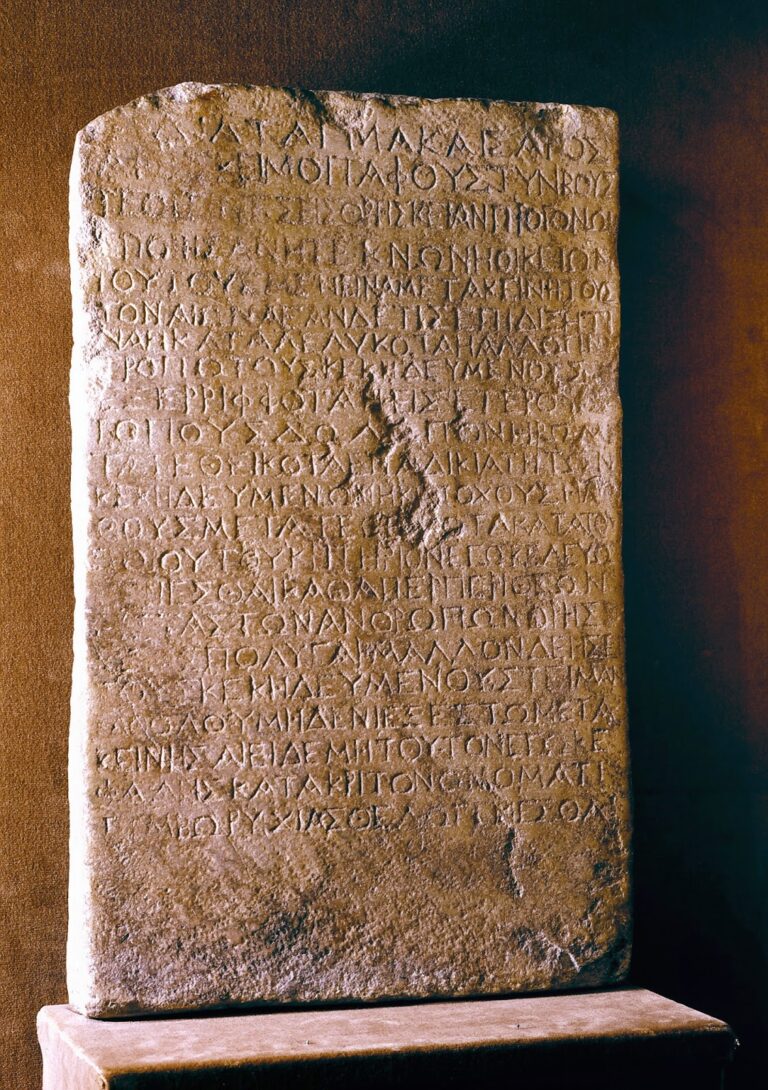 ΔΙΑΤΑΓΜΑ ΚΑΙΣΑΡΟΣ
ΑΡΕΣΚΕΙ ΜΟΙ ΤΑΦΟΥΣ ΤΥΝΒΟΥΣ
ΤΕ ΟΙΤΙΝΕΣ ΕΙΣ ΘΡΗΣΚΕΙΑΝ ΠΡΟΓΟΝΩΝ
ΕΠΟΙΗΣΑΝ Η ΤΕΚΝΩΝ Η ΟΙΚΕΙΩΝ
ΤΟΥΤΟΥΣ ΜΕΝΕΙΝ ΑΜΕΤΑΚΕΙΝΗΤΟΥΣ
ΤΟΝ ΑΙΩΝΑ ΕΑΝ ΔΕ ΤΙΣ ΕΠΙΔΙΞΗ ΤΙ
ΝΑ Η ΚΑΤΑΛΕΛΥΚΟΤΑ Η ΑΛΛΩ ΤΙΝΙ
ΤΡΟΠΩ ΤΟΥΣ ΚΕΚΗΔΕΥΜΕΝΟΥΣ
ΕΞΕΡΡΙΦΦΟΤΑ Η ΕΙΣ ΕΤΕΡΟΥΣ
ΤΟΠΟΥΣ ΔΩΛΩ ΠΟΝΗΡΩ ΜΕ
ΤΑΤΕΘΕΙΚΟΤΑ ΕΠ ΑΔΙΚΙΑ ΤΗ ΤΩΝ
ΚΕΚΗΔΕΥΜΕΝΩΝ Η ΚΑΤΟΧΟΥΣ Η ΛΙ
ΘΟΥΣ ΜΕΤΑΤΕΘΕΙΚΟΤΑ ΚΑΤΑ ΤΟΙ
ΟΥΤΟΥ ΚΡΙΤΗΡΙΟΝ ΕΓΩ ΚΕΛΕΥΩ
ΓΕΝΕΣΘΑΙ ΚΑΘΑΠΕΡ ΠΕΡΙ ΘΕΩΝ
ΕΙΣ ΤΑΣ ΤΩΝ ΑΝΘΡΩΠΩΝ ΘΡΗΣ
ΚΙΑΣ ΠΟΛΥ ΓΑΡ ΜΑΛΛΟΝ ΔΕΗΣΕΙ
ΤΟΥΣ ΚΕΚΗΔΕΥΜΕΝΟΥΣ ΤΕΙΜΑΝ
ΚΑΘΟΛΟΥ ΜΗΔΕΝΙ ΕΞΕΣΤΩ ΜΕΤΑ
ΚΕΙΝΗΣΑΙ ΕΙ ΔΕ ΜΗ ΤΟΥΤΟΝ ΕΓΩ ΚΕ
ΦΑΛΗΣ ΚΑΤΑΚΡΙΤΟΝ ΟΝΟΜΑΤΙ
ΤΥΜΒΩΡΥΧΙΑΣ ΘΕΛΩ ΓΕΝΕΣΘΑΙ